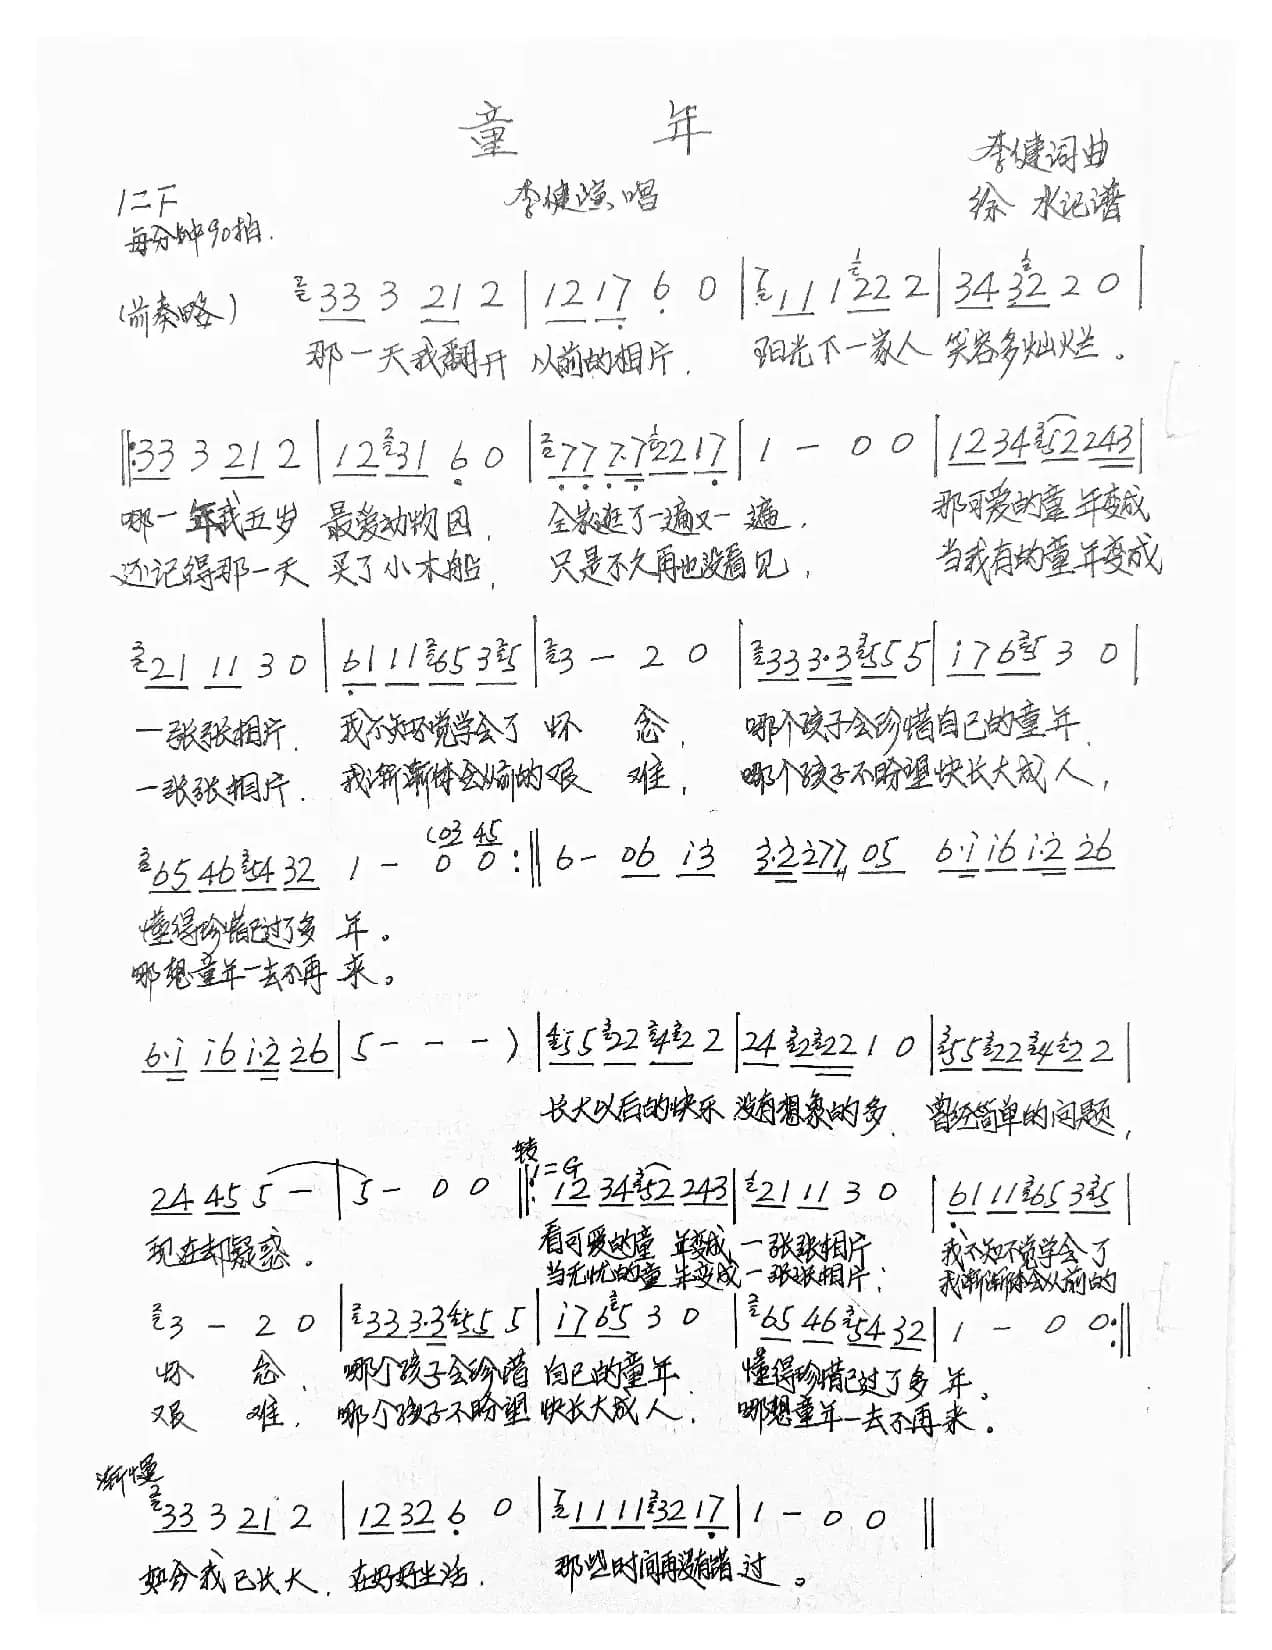 童 年
李健词曲
1=F
李健演唱
徐 水记谱
每分钟90拍.
(前奏略) 33 3 21 2 | 12 17 6 0 | 11 1 22 2 | 34 32 2 0 |
那一天我翻开 以前的相片. 阳光下一家人 笑容多灿烂。
‖:33 3 21 2 | 12 31 6 0 | 77 7·7 22 17 | 1 - 0 0 | 12 34 52 243 |
哪一年我五岁 最爱动物园, 全家逛了一遍又一遍. 那可爱的童年变成
还记得那一天 买了小木船, 只是不久再也没看见, 当我有的童年变成
21 11 3 0 | 61 11 65 35 | 3 - 2 0 | 33 3·3 55 5 | i7 65 3 0 |
一张张相片. 我不知不觉学会了怀 念, 哪个孩子会珍惜自己的童年.
一张张相片. 我渐渐体会从前的艰 难, 哪个孩子不盼望快长大成人,
(03 45
65 46 54 32 1 - 0 0 :‖ 6 - 06 i3 3·2 277 05 6·i i6 i·2 26
懂得珍惜已过了多 年。
哪想童年一去不再 来。
6·i i6 i·2 26 | 5 - - - ) | 55 22 42 2 | 24 2222 1 0 | 55 22 42 2 |
长大以后的快乐 没有想象的多. 曾经简单的问题,
转1=G
24 45 5 - | 5 - 0 0 ‖: 12 34 52 243 | 21 11 3 0 | 61 11 65 35 |
现在却疑惑。 看可爱的童 年变成 一张张相片 我不知不觉学会了
当无忧的童 年变成一张张相片; 我渐渐体会从前的
3 - 2 0 | 33 3·3 55 5 | i7 65 3 0 | 65 46 54 32 | 1 - 0 0 :‖
怀 念. 哪个孩子会珍惜 自己的童年. 懂得珍惜已过了多 年。
艰 难. 哪个孩子不盼望 快长大成人. 哪想童年一去不再来。
渐慢
33 3 21 2 | 12 32 6 0 | 11 11 32 17 | 1 - 0 0 ‖
如今我已长大. 在好好生活. 那些时间再没有错过。